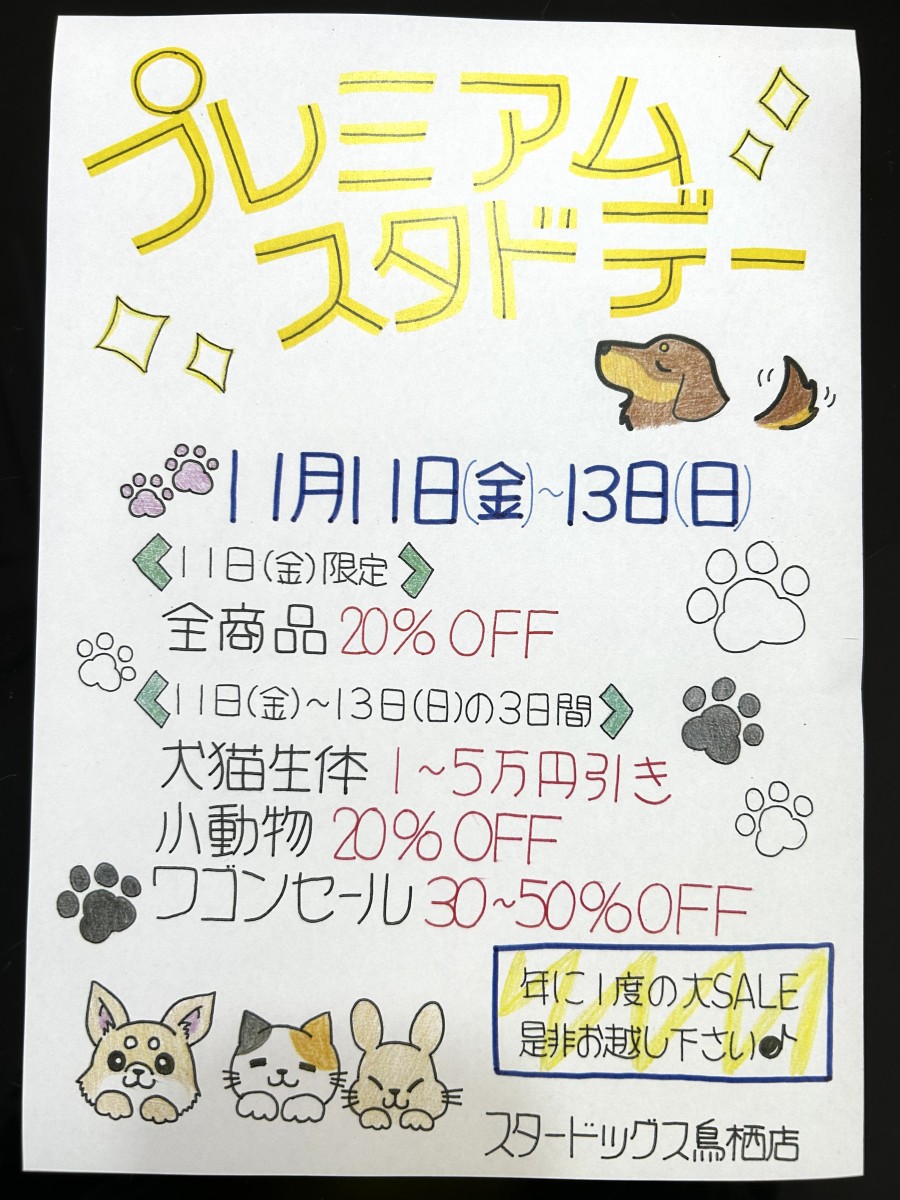 プレミアム
スタドデー
11月11日(金)~13日(日)
《11日(金)限定》
全商品 20% OFF
《11日(金)~13日(日)の3日間》
犬猫生体 1~5万円引き
小動物 20% OFF
ワゴンセール 30~50%OFF
年に1度の大SALE
是非お越し下さい♪
スタードッグス鳥栖店